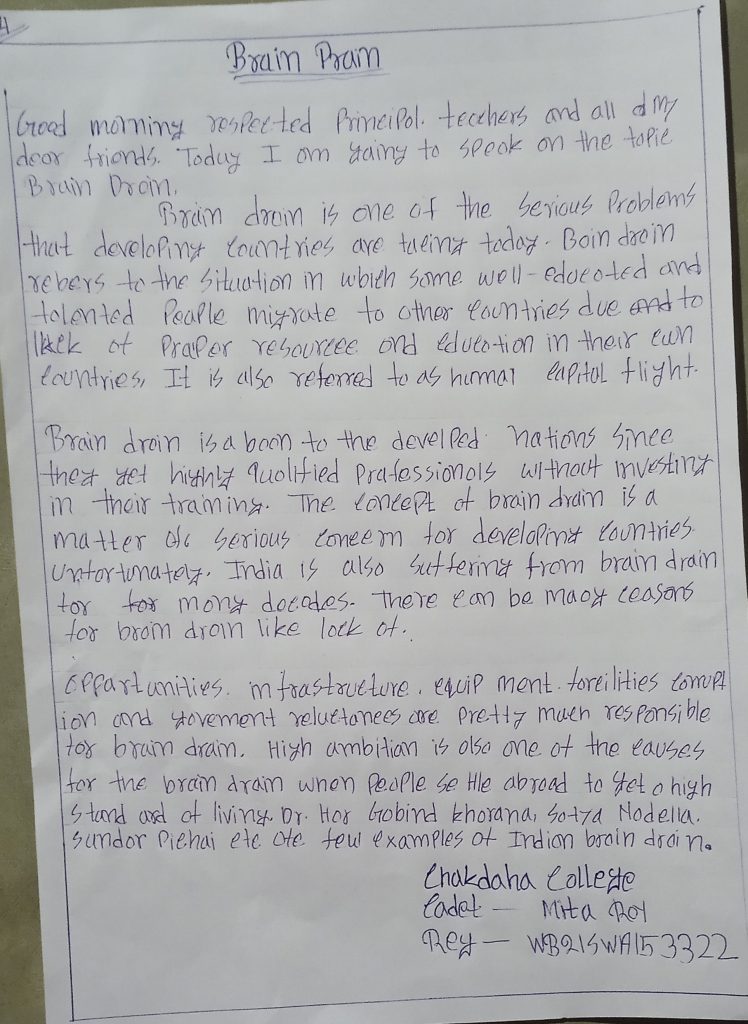 4
Brain Drain
Good morning respected Principal. teachers and all of my
dear friends. Today I am going to speak on the topic
Brain Drain.
Brain drain is one of the serious Problems
that developing countries are facing today. Brain drain
refers to the situation in which some well-educated and
talented People migrate to other countries due and to
lack of Proper resources and education in their own
countries, It is also referred to as human capital flight.
Brain drain is a boon to the develped nations since
they get highly qualified Professionals without investing
in their training. The concept of brain drain is a
matter of serious concern for developing countries.
Unfortunately. India is also suffering from brain drain
for for many decades. There can be many reasons
for brain drain like lack of.
opportunities. infrastructure. equipment. facilities corrupt
ion and government reluctances are pretty much responsible
for brain drain. High ambition is also one of the causes
for the brain drain when People settle abroad to get a high
standard of living. Dr. Har Gobind Khorana, Satya Nadella.
Sundar Pichai etc are few examples of Indian brain drain.
Chakdaha College
Cadet - Mita Roy
Reg - WB21SWA153322